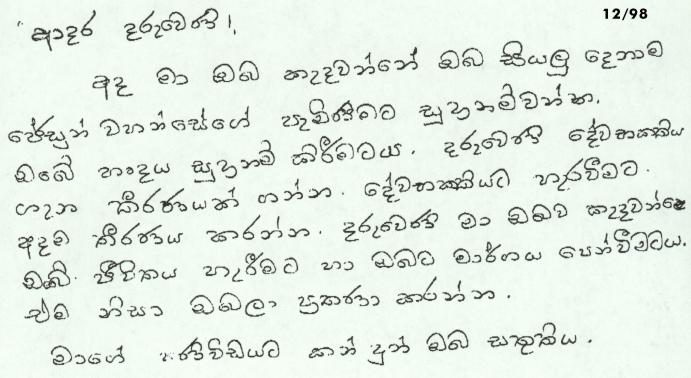 12/98
"ආදර දරුවෙණි!
අද මා ඔබ කැඳවන්නේ ඔබ සියලු දෙනාම
ජේසුන් වහන්සේගේ පැමිණීමට සූදානම්වන්න.
ඔබේ හෘදය සූදානම් කිරීමටය. දරුවෙණි දේවභක්තිය
ගැන තීරණයක් ගන්න. දේවභක්තියට හැරවීමට.
අදම තීරණය කරන්න. දරුවෙණි මා ඔබව කැඳවන්නෙ
ඔබේ ජීවිතය හැරීමට හා ඔබට මාර්ගය පෙන්වීමටය.
එම නිසා ඔබලා කරන්න.
මාගේ කන් දුන් ඔබ